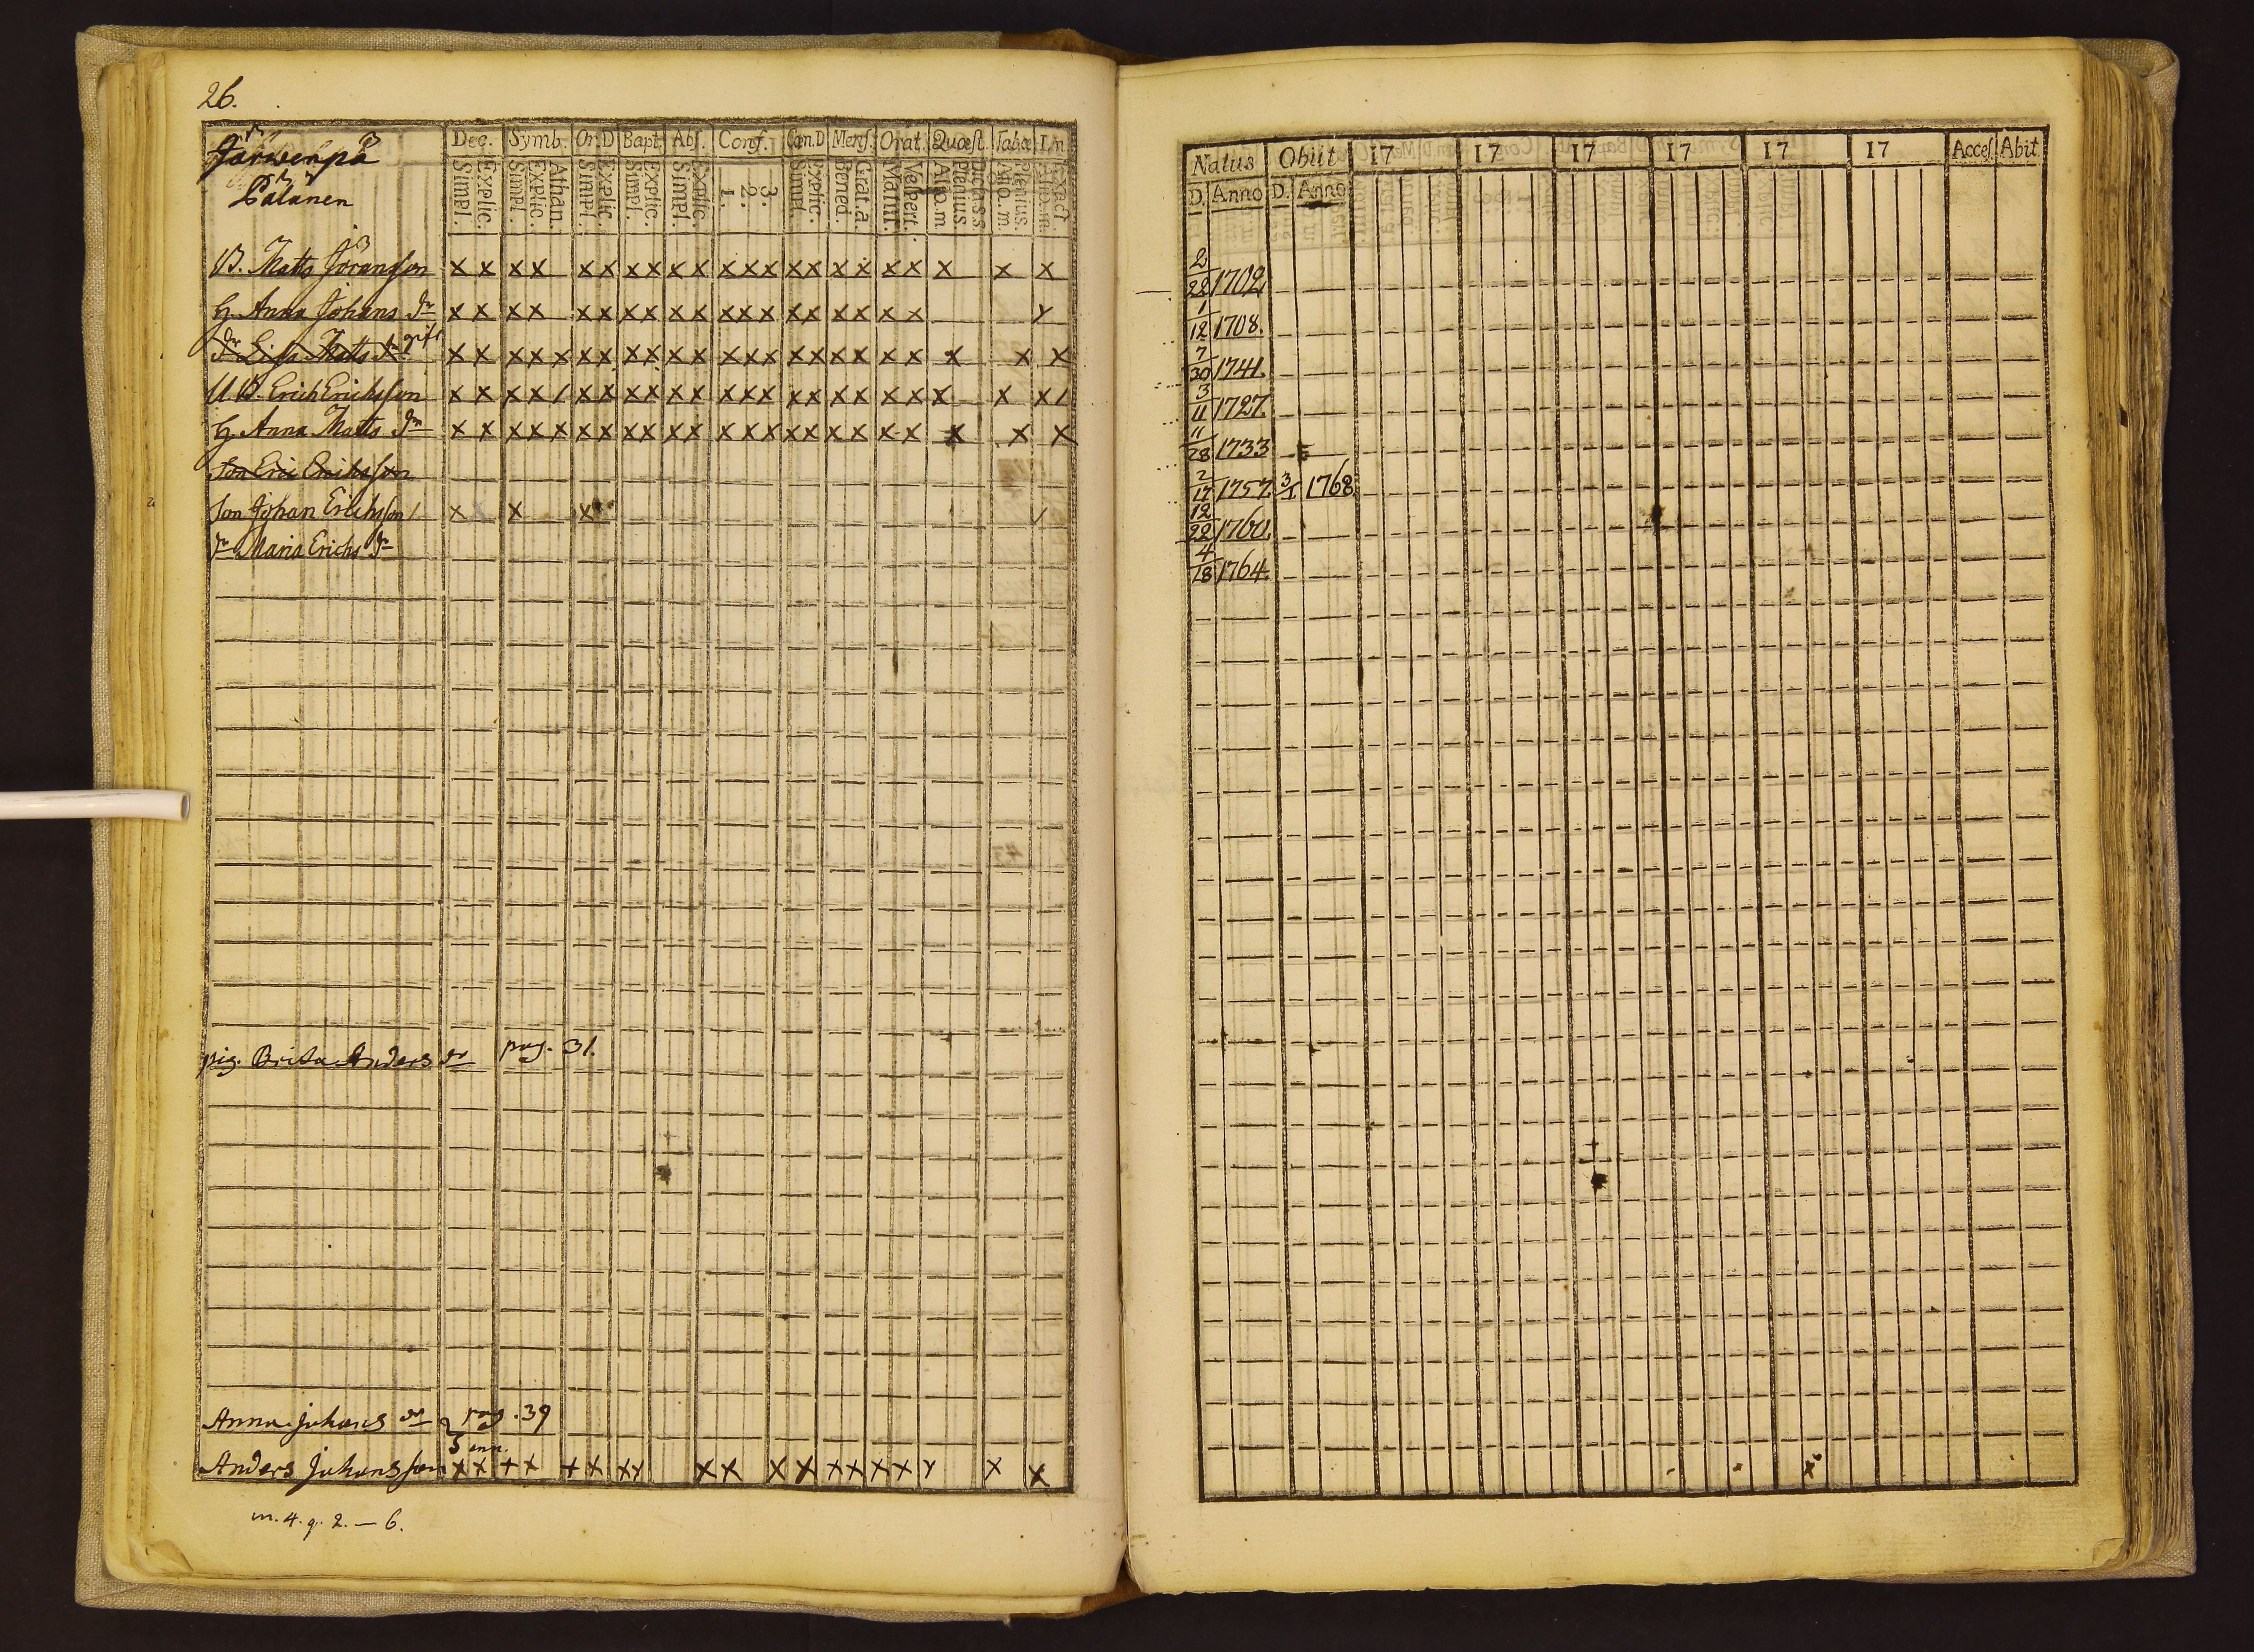 26.
Järwenpä
Pälänen
Dec. Symb. Or.D Bapt. Abſ. Conf. Cœn.D Menſ. Orat. Quæſt. Tabæ I.n.
Simpl. Explic. Simpl. Explic. Athan. Simpl. Explic. Simpl. Explic. Simpl. Explic. 1. 2. 3. Simpl. Explic. Bened. Grat.a. Matut. Veſpert. Alio.m Plenius Dictass Alio.m. Plenius. Alio.m. Exact
B. Matts Jöransson x x x x x x x x x x x x x x x x x x x x x x
H. Anna Johans dr x x x x x x x x x x x x x x x x x x x y
dr Lisa Matts dr gift x x x x x x x x x x x x x x x x x x x x x x x
U B. Erich Erichsson x x x x / x x x x x x x x x x x x x x x x x x /
H Anna Matts dr x x x x x x x x x x x x x x x x x x x x x x x
Son Eric Ericksson
Son Johan Erichsson / x x x /
dr Maria Erichs dr
pig. Brita Anders dr pag. 31.
Anna Johans dr pag. 39
Anders Johansson x x + x + x x y x x x x x x x x y x x
m. 4. q. 2. — 6.
Natus Obiit 17 17 17 17 17 17 Acceſ Abit
D. Anno D. Anno
2/22 1702
1/12 1708.
7/30 1741.
3/11 1727.
11/28 1733
2/17 1757. 3/1 1768
12/22 1760.
4/18 1764.